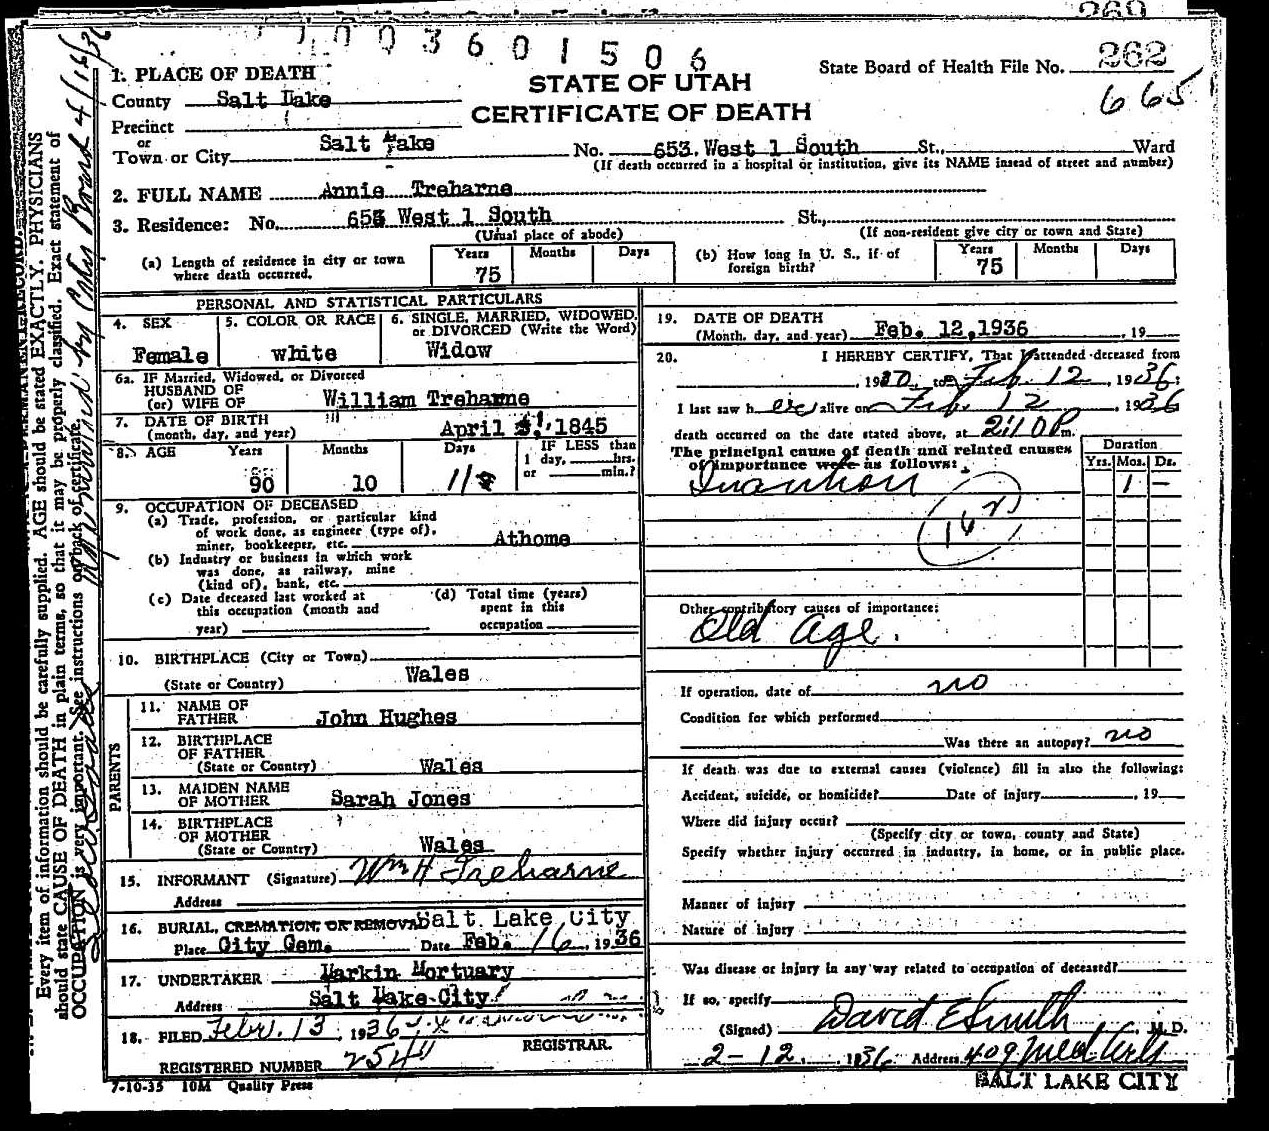 7003601506
262
665
State Board of Health File No.
STATE OF UTAH
CERTIFICATE OF DEATH
1. PLACE OF DEATH
County Salt Lake
Precinct
or
Town or City Salt Lake No. 653 West 1 South St., Ward
(If death occurred in a hospital or institution, give its NAME insead of street and number)
2. FULL NAME Annie Treharne
3. Residence: No. 653 West 1 South St.,
(Usual place of abode) (If non-resident give city or town and State)
(a) Length of residence in city or town where death occurred. Years 75 Months Days
(b) How long in U. S., if of foreign birth? Years 75 Months Days
PERSONAL AND STATISTICAL PARTICULARS
4. SEX Female
5. COLOR OR RACE white
6. SINGLE, MARRIED, WIDOWED, or DIVORCED (Write the Word) Widow
6a. IF Married, Widowed, or Divorced
HUSBAND OF
(or) WIFE OF William Treharne
7. DATE OF BIRTH
(month, day, and year) April 1, 1845
8. AGE Years 90 Months 10 Days 11
IF LESS than
1 day, hrs.
or min.?
9. OCCUPATION OF DECEASED
(a) Trade, profession, or particular kind
of work done, as engineer (type of),
miner, bookkeeper, etc. Athome
(b) Industry or business in which work
was done, as railway, mine
(kind of), bank, etc.
(c) Date deceased last worked at
this occupation (month and
year)
(d) Total time (years)
spent in this
occupation
10. BIRTHPLACE (City or Town)
(State or Country) Wales
PARENTS
11. NAME OF
FATHER John Hughes
12. BIRTHPLACE
OF FATHER
(State or Country) Wales
13. MAIDEN NAME
OF MOTHER Sarah Jones
14. BIRTHPLACE
OF MOTHER
(State or Country) Wales
15. INFORMANT (Signature) Wm H Treharne
Address
16. BURIAL, CREMATION, OR REMOVAL Salt Lake City
Place City Cem. Date Feb. 16, 1936
17. UNDERTAKER Larkin Mortuary
Address Salt Lake City
18. FILED Febr. 13, 1936
REGISTRAR.
REGISTERED NUMBER 254
7-10-35 10M Quality Press
19. DATE OF DEATH
(Month, day, and year) Feb. 12, 1936, 19
20. I HEREBY CERTIFY, That I attended deceased from
, 1930 to Feb. 12, 1936;
I last saw her alive on Feb. 12, 1936
death occurred on the date stated above, at 2:10 P m.
The principal cause of death and related causes
of importance were as follows:
Duration
Yrs. Mos. Ds.
Inanition 1 –
162
Other contributory causes of importance:
Old Age.
If operation, date of no
Condition for which performed
Was there an autopsy? no
If death was due to external causes (violence) fill in also the following:
Accident, suicide, or homicide? Date of injury , 19
Where did injury occur?
(Specify city or town, county and State)
Specify whether injury occurred in industry, in home, or in public place.
Manner of injury
Nature of injury
Was disease or injury in any way related to occupation of deceased?
If so, specify
(Signed) David E Smith, M. D.
2-12, 1936 Address 409 Med Arts
SALT LAKE CITY
Every item of information should be carefully supplied. AGE should be stated EXACTLY. PHYSICIANS
should state CAUSE OF DEATH in plain terms, so that it may be properly classified. Exact statement of
OCCUPATION is very important. See instructions on back of certificate.